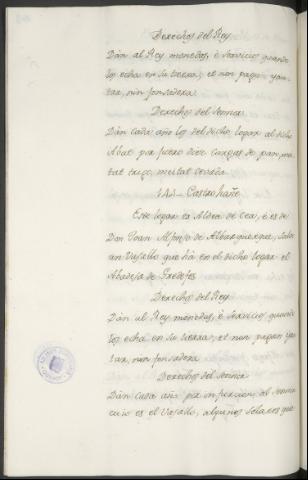 Derechos del Rey
Dán al Rey monedas, è servicio quando
los echa en su tierra; et non pagan yan-
tar, nin fonsadera.
Derechos del Señor
Dán cada año los del dicho logar al dicho
Abat por fuero doce cargas de pan, me-
tat trigo, metat cevada.
Castroñañe
Este logar es Aldea de Cea, è es de
Don Joan Alfonso de Alburquerque, salvo
un Vasallo que há en el dicho logar el
Abadesa de Gradefes
Derechos del Rey
Dán al Rey monedas, è servicio quando
los echa en su tierra, et non pagan yan-
tar, nin fonsadera
Derechos del Señor
Dán cada año por infurcion, al Señor
cuio es el Vasallo, algunos solares que